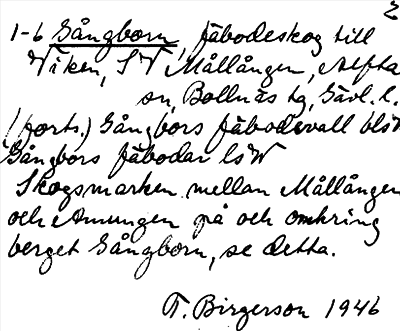 2
1-6 Gångborn, fäbodeskog till
Viken, SV Mållången, Alfta
sn, Bollnäs tg, Gävl. l.
(forts.) Gångbors fäbodevall blst
Gångbors fäbodar lsW
Skogsmarken mellan Mållången
och Amungen på och omkring
berget Gångborn, se detta.
T. Birgerson 1946